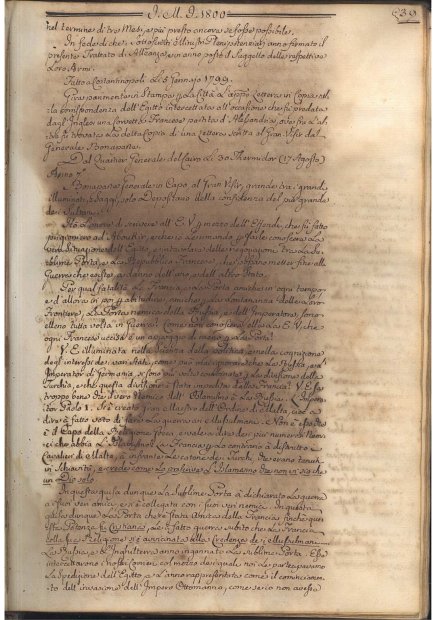 J. M. J. 1800
539
nel termine di tre Mesi, e più presto ancora se fosse possibile.
In fede di che i sottoscritti Ministri Plenipotenziarj anno firmato il
presente Trattato di Alleanza, e vi anno posto il Suggello delle rispettive
Loro Armi.
Fatto a Costantinopoli li 5 Gennajo 1799.
Gira
la corrispondenza dell'Egitto intercettata all'occasione che fu predata
dagl'Inglesi una Corvetta Francese partita d'Alessandria, ove fra l'al
della Copia di una Lettera scritta al Gran Visir dal
Generale Bonaparte.
Dal Quartier Generale del Cairo li 30 Thermidor (17 Agosto)
Anno 7.
Bonaparte Generale in Capo al Gran Visir, grande fra i grandi
illuminati, e saggi, solo Depositario della confidenza del più grande
dei Sultani.
Ho l'onore di scrivere all'E. V. per mezzo dell'Effendi, che fu fatto
prigioniero ad Aboukir, e che le rimando per farle conoscere la
vera situazione dell'Egitto, ed intavolare delle negoziazioni tra la Su-
blime Porta, e la Repubblica Francese, che possano metter fine alla
Guerra che esiste, a danno dell'uno, e dell'altro Stato.
Per qual fatalità la Francia, e la Porta amiche in ogni tempo
e d'allora in poi per abitudine, amiche per la lontananza delle loro
Frontiere, la Porta nemica della Russia, e dell'Imperatore, sono
elleno tutta volta in Guerra? Come non conoscerà ella la E. V. che
ogni Francese ucciso è un appoggio di meno per la Porta?
V. E. illuminata nella Scienza della politica, e nella cognizione
degl'interessi dei varj Stati, come può mai ignorare che la Russia, e l'
Imperator di Germania, si sono più volte concertati per la divisione della
Turchia, e che questa divisione è stata impedita dalla Francia? V. E. sa
troppo bene che il vero nemico dell'Islamismo è la Russia. L'Impera-
tor Paolo I. si è creato Gran Maestro dell'Ordine di Malta, cioè a
dire à fatto voto di fare la guerra ai Musulmani: Non è esso che
è il Capo della Religione Greca, e vale a dire dei più numerosi Nemi-
ci che abbia l'Islamismo? La Francia per lo contrario à disfatto i
Cavalier di Malta, à infrante le catene dei Turchi che erano tenuti
in ischiavitù, e crede come lo prescrive l'Islamismo che non vi sia che
un Dio solo.
In questa guisa dunque la Sublime Porta à dichiarato la guerra
a i suoi veri amici, e si è collegata con i suoi veri nemici. In questa
guisa dunque la Porta che è stata Amica della Francia finchè que-
sta Potenza fu Cristiana, le à fatto guerra subito che la Francia
colla sua Religione si è avvicinata alla Credenza dei Musulmani.
La Russia, e l'Inghilterra anno ingannato la Sublime Porta. Esse
intercettavano i nostri Corrieri col mezzo dei quali noi le partecipavamo
la Spedizione dell'Egitto, e l'anno rappresentata come il comincia-
to dell'invasione dell'Impero Ottomanno, come se io non avessi